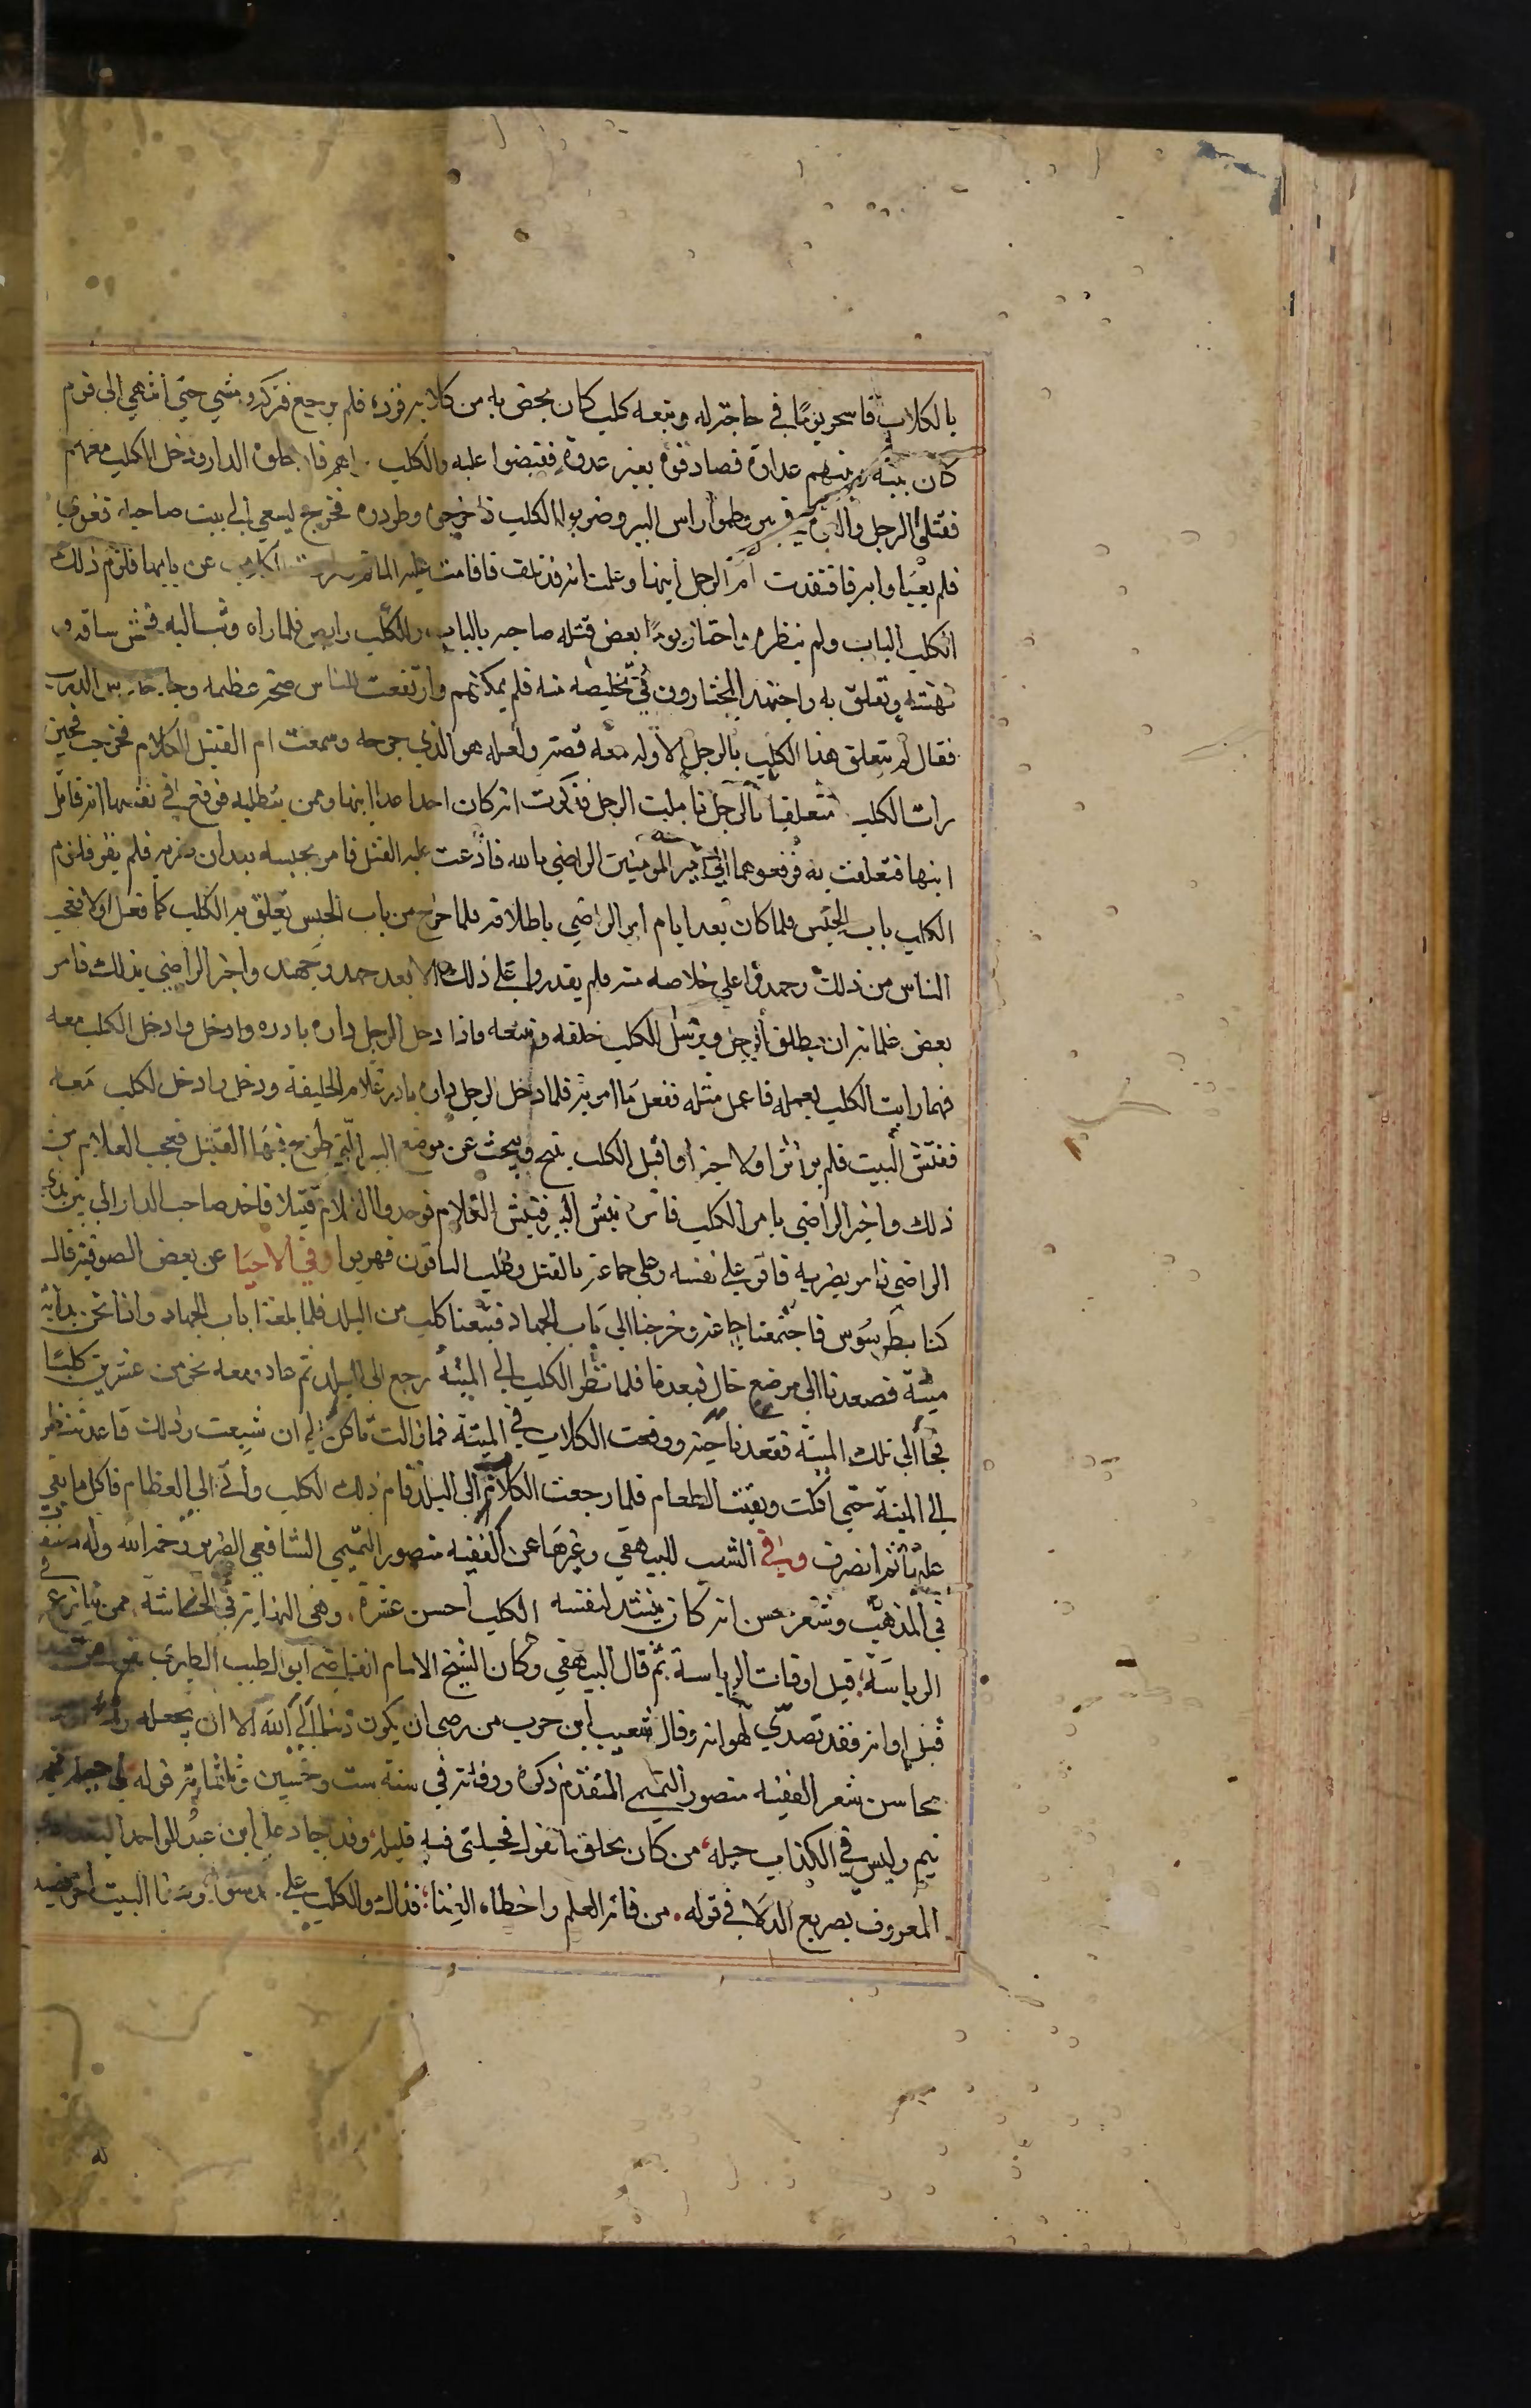 بالكلاب فاسحر يومًا في حاجة له وتبعه كلب كان يختص به من كلابه فرده فلم يرجع فتركه ومشي حتي انتهي الي قوم
كان بينه وبينهم عداوة فصادفوه بغير عدة فقبضوا عليه والكلب فادخلوه الدار ودخل الكلب معهم
فقتلوا الرجل والقوه في بير وطموا راس البير وضربوا الكلب فاخرجوه وطردوه فخرج يسعي الي بيت صاحبه فعوي
فلم يعبئوا به فافتقدت ام الرجل ابنها وعلمت انه قد تلف فاقامت عليه الماتم وطردت الكلاب عن بابها فلزم ذلك
الكلب الباب ولم ينطرد فاجتاز يومًا بعض قتلة صاحبه بالباب والكلب رابض فلما راه وثب اليه فخمش ساقه و
نهشه وتعلق به واجتهد المجتازون في تخليصه منه فلم يمكنهم وارتفعت للناس ضجة عظيمه وجا حارس الدرب
فقال لم يتعلق هذا الكلب بالرجل الا وله معه قصة ولعله هو الذي جرحه وسمعت ام القتيل الكلام فخرجت فحين
رات الكلب متعلقا بالرجل تاملت الرجل فذكرت انه كان احد اعدا ابنها وممن يتطلبه فوقع في نفسها انه قاتل
ابنها فتعلقت به فرفعوهما الي امير المومنين الراضي بالله فادعت عليه القتل فامر بحبسه بعد ان ضربه فلم يقر فلزم
الكلب باب الحبس فلما كان بعد ايام امر الراضي باطلاقه فلما خرج من باب الحبس تعلق به الكلب كما فعل اولا فعجب
الناس من ذلك وجهدوا علي خلاصه منه فلم يقدروا علي ذلك الا بعد جهد جهيد واخبر الراضي بذلك فامر
بعض غلمانه ان يطلق الرجل ويرسل الكلب خلفه ويتبعه فاذا دخل الرجل داره بادره وادخل وادخل الكلب معه
فمهما رايت الكلب يعمله فاعمل مثله ففعل ما امره به فلما دخل الرجل داره بادر غلام الخليفة ودخل وادخل الكلب معه
ففتش البيت فلم ير اثرا ولا خبرا واقبل الكلب ينبح ويبحث عن موضع البير التي طرح فيها القتيل فعجب الغلام من
ذلك واخبر الراضي بامر الكلب فامر بنبش البير فنبش الغلام فوجدوا الرجل قتيلا فاخذ صاحب الدار الي بين يدي
الراضي فامر بضربه فاقر علي نفسه وعلي جماعة بالقتل وطلب الباقون فهربوا وفي الاحيا عن بعض الصوفية قال
كنا بطرسوس فاجتمعنا جماعة وخرجنا الي باب الجهاد فتبعنا كلب من البلد فلما بلغنا باب الجهاد واذا نحن بدابة
ميتة فصعدنا الي موضع خال فبعدنا فلما نظر الكلب الي الميتة رجع الي البلد ثم عاد ومعه نحو من عشرين كلبًا
فجا الي تلك الميتة فقعد ناحية ووقعت الكلاب في الميتة فما زالت تاكل الي ان شبعت وذلك قاعد ينظر
الي الميتة حتي اكلت وبقيت العظام فلما رجعت الكلاب الي البلد قام ذلك الكلب واتي الي العظام فاكل ما بقي
عليها ثم انصرف وفي الشعب للبيهقي وغيرها عن الفقيه منصور التميمي الشافعي الضرير رحمه الله وله مصنفات
في المذهب وشعر حسن انه كان ينشد لنفسه الكلب احسن عشرة وهي النهاية في الخساسة ممن ينازع في
الرياسة قبل اوقات الرياسة ثم قال البيهقي وكان الشيخ الامام القاضي ابو الطيب الطبري يقول من تصدر
قبل اوانه فقد تصدي لهوانه وقال شعيب ابن حرب من رضي ان يكون ذنبا ابي الله الا ان يجعله راسا ومن
محاسن شعر الفقيه منصور التميمي المتقدم ذكره ووفاته في سنة ست وخمسين وثلثماية قوله لي حيلة فيمن
ينم وليس في الكذاب حيله من كان يخلق ما يقول فحيلتي فيه قليله وقد اجاد علي ابن عبد الواحد البغدادي
المعروف بصريع الدلا في قوله من فاته العلم واخطاه الغنا فذاك والكلب علي حد سوا وهذا البيت اخر قصيده
له